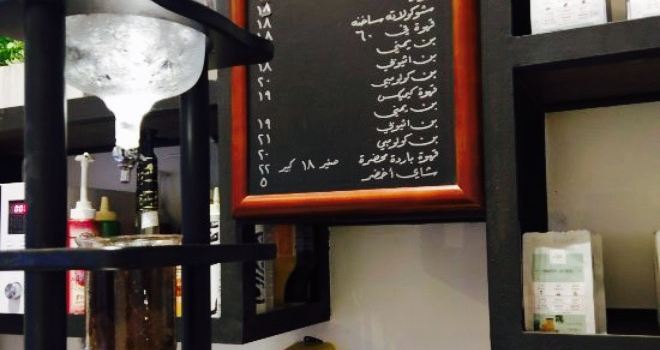 شوكولاته ساخنه ١٨
قهوة في ٦٠ ١٨
بن يمني
بن اثيوبي ١٨
بن كولومبي ٢٠
قهوة كيمكس ١٩
بن يمني
بن اثيوبي ١٩
بن كولومبي ٢١
قهوة باردة محضرة صغير ١٨ كبير ٢٢
شاي أخضر ٥